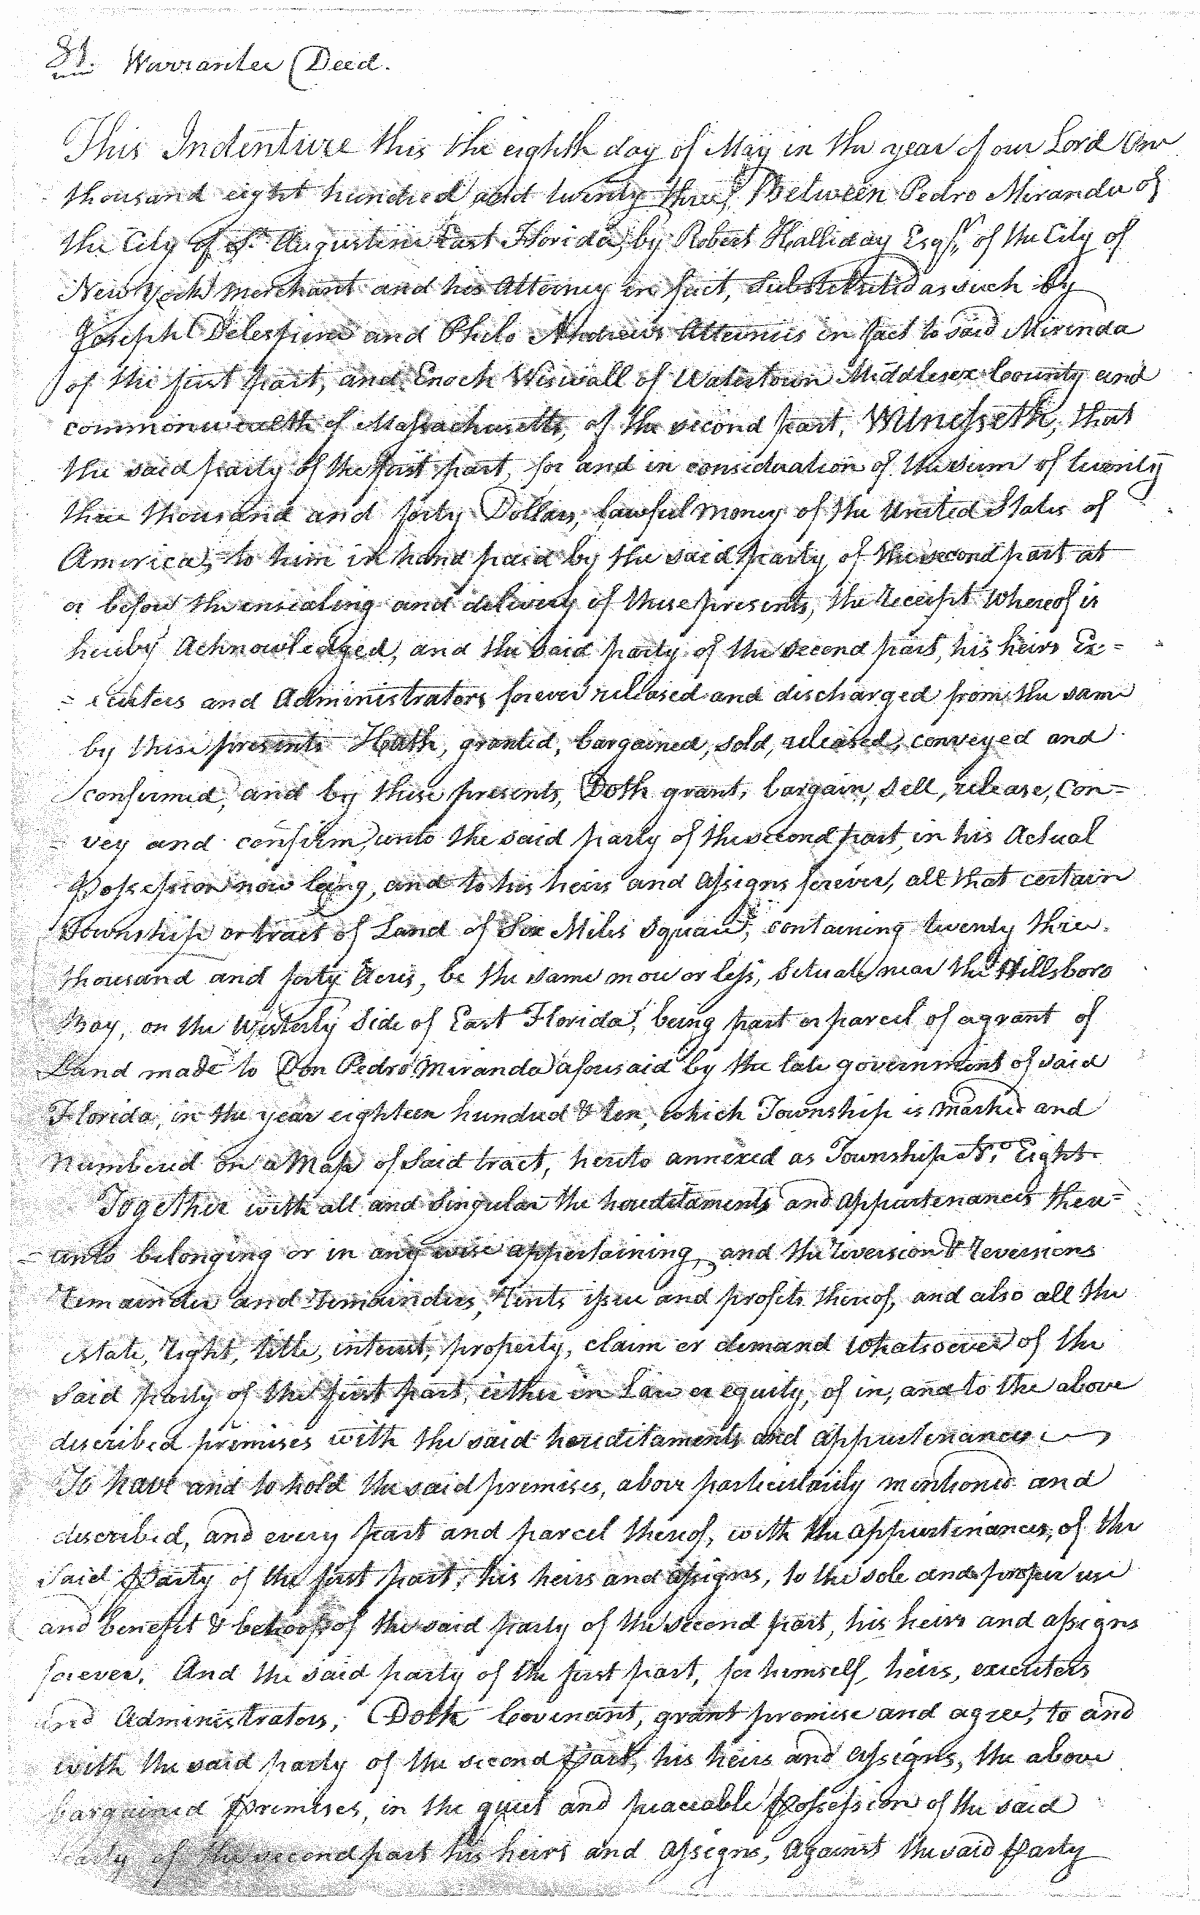 81. Warrantee Deed.
This Indenture this the eighth day of May in the year of our Lord One
thousand eight hundred and twenty three, Between Pedro Miranda of
the City of St. Augustine East Florida, by Robert Halliday Esqr. of the City of
New York merchant and his Attorney in fact, substituted as such by
Joseph Delespine and Philo Andrews Attornies in fact to said Mirinda
of the first part, and Enoch Wiswall of Watertown Middlesex County and
commonwealth of Massachusetts, of the second part, Witnesseth, that
the said party of the first part, for and in consideration of the sum of twenty
three thousand and forty Dollars, lawful money of the United States of
America, to him in hand paid by the said party of the second part at
or before the ensealing and delivery of these presents, the receipt whereof is
hereby Acknowledged, and the said party of the second part, his heirs Ex:=
= ecuters and Administrators forever released and discharged from the same
by these presents Hath, granted, bargained, sold, released, conveyed and
confirmed, and by these presents, Doth grant, bargain, sell, release, con=
= vey and confirm, unto the said party of the second part, in his Actual
Possession now being, and to his heirs and Assigns forever, all that certain
Township or tract of Land of Six Miles Square, containing twenty three
thousand and forty Acres, be the same more or less, situate near the Hillsboro
Bay, on the Westerly Side of East Florida, being part or parcel of a grant of
Land made to Don Pedro Miranda aforesaid by the late government of said
Florida, in the year eighteen hundred & ten, which Township is marked and
Numbered on a Map of said tract, hereto annexed as Township No. Eight.
Together with all and singular the hereditaments and appurtenances there=
= unto belonging or in any wise appertaining, and the reversion & reversions
remainder and remainders, rents issue and profits thereof, and also all the
estate, right, title, interest, property, claim or demand whatsoever of the
said party of the first part, either in Law or equity, of in, and to the above
described premises with the said hereditaments and appurtenances
To have and to hold the said premises, above particularily mentioned and
described, and every part and parcel thereof, with the appurtenances, of the
said party of the first part, his heirs and assigns, to the sole and proper use
and benefit & behoof of the said party of the second part, his heirs and assigns
forever. And the said party of the first part, for himself, heirs, executers
and Administrators, Doth Covenant, grant promise and agree, to and
with the said party of the second part, his heirs and assigns, the above
bargained Premises, in the quiet and peaceable Possession of the said
party of the second part his heirs and assigns, Against the said Party